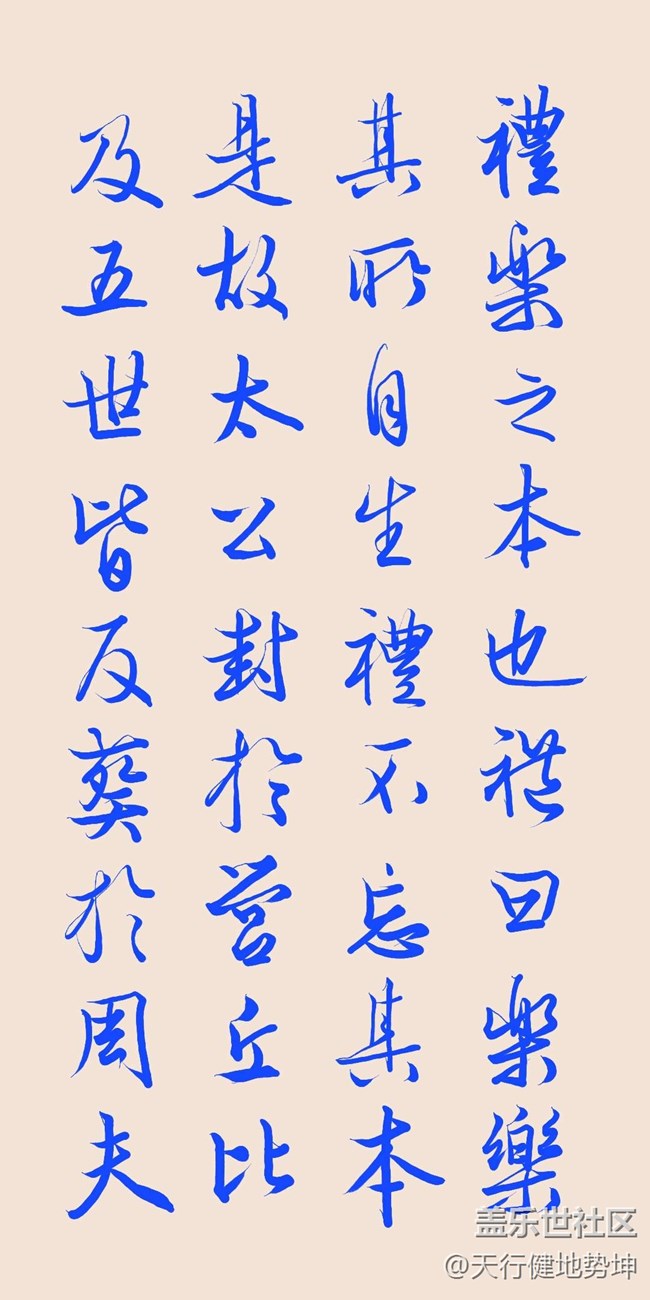 禮樂之本也禮曰樂樂
其所自生禮不忘其本
是故太公封於營丘比
及五世皆反葬於周夫
盖乐世社区
@天行健地势坤